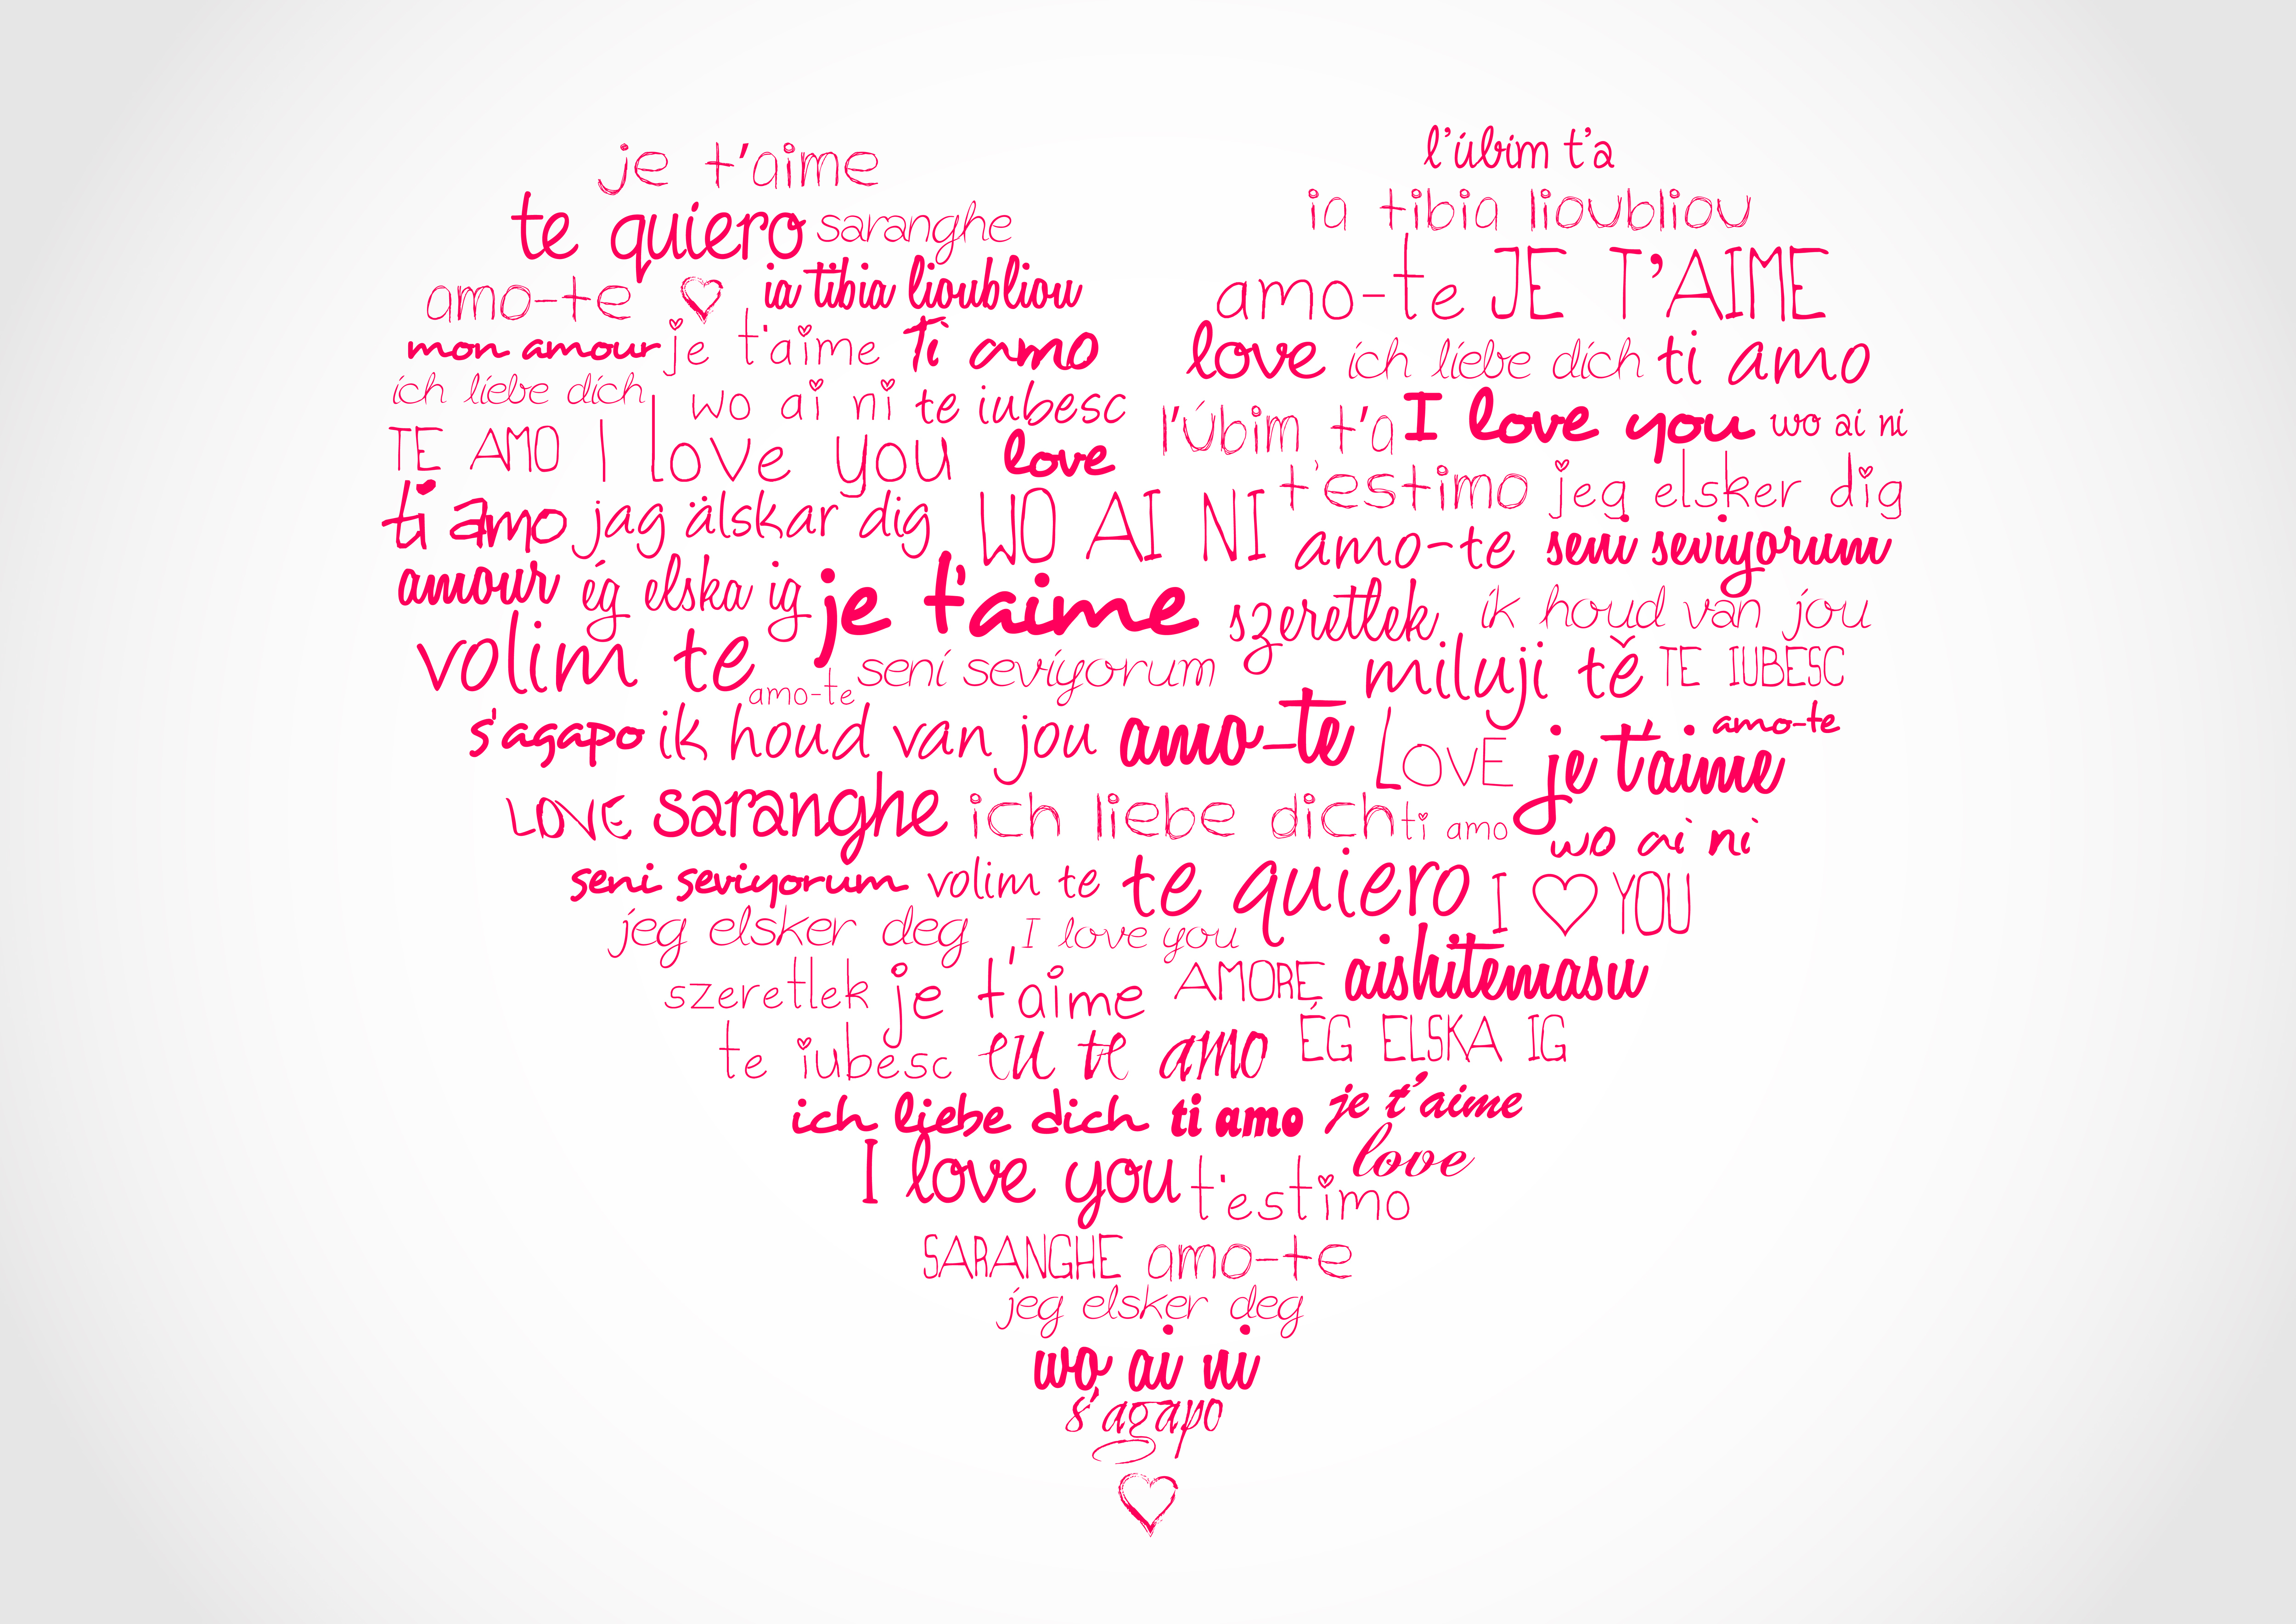 je t'aime
l'úbim t'a
te quiero saranghe
ia tibia lioubliou
amo-te ia tibia lioubliou
amo-te JE T'AIME
mon amour je t'aime Ti amo
love ich liebe dich ti amo
ich liebe dich wo ai ni te iubesc
l'Úbim t'a I love you wo ai ni
TE AMO I love you love
t'estimo jeg elsker dig
ti amo jag älskar dig WO AI NI amo-te seni seviyorum
amour ég elska ig je t'aime szeretlek ik houd van jou
volim te amo-te seni seviyorum miluji tě TE IUBESC
s'agapo ik houd van jou amo-te LOVE je t'aime amo-te
LOVE saranghe ich liebe dich ti amo wo ai ni
seni seviyorum volim te te quiero I ♡ YOU
jeg elsker deg I love you
szeretlek je t'aime AMORE aishitemasu
te iubesc eu te amo ÉG ELSKA IG
ich liebe dich ti amo je t'aime
I love you t'estimo love
SARANGHE amo-te
jeg elsker deg
wo ai ni
s'agapo